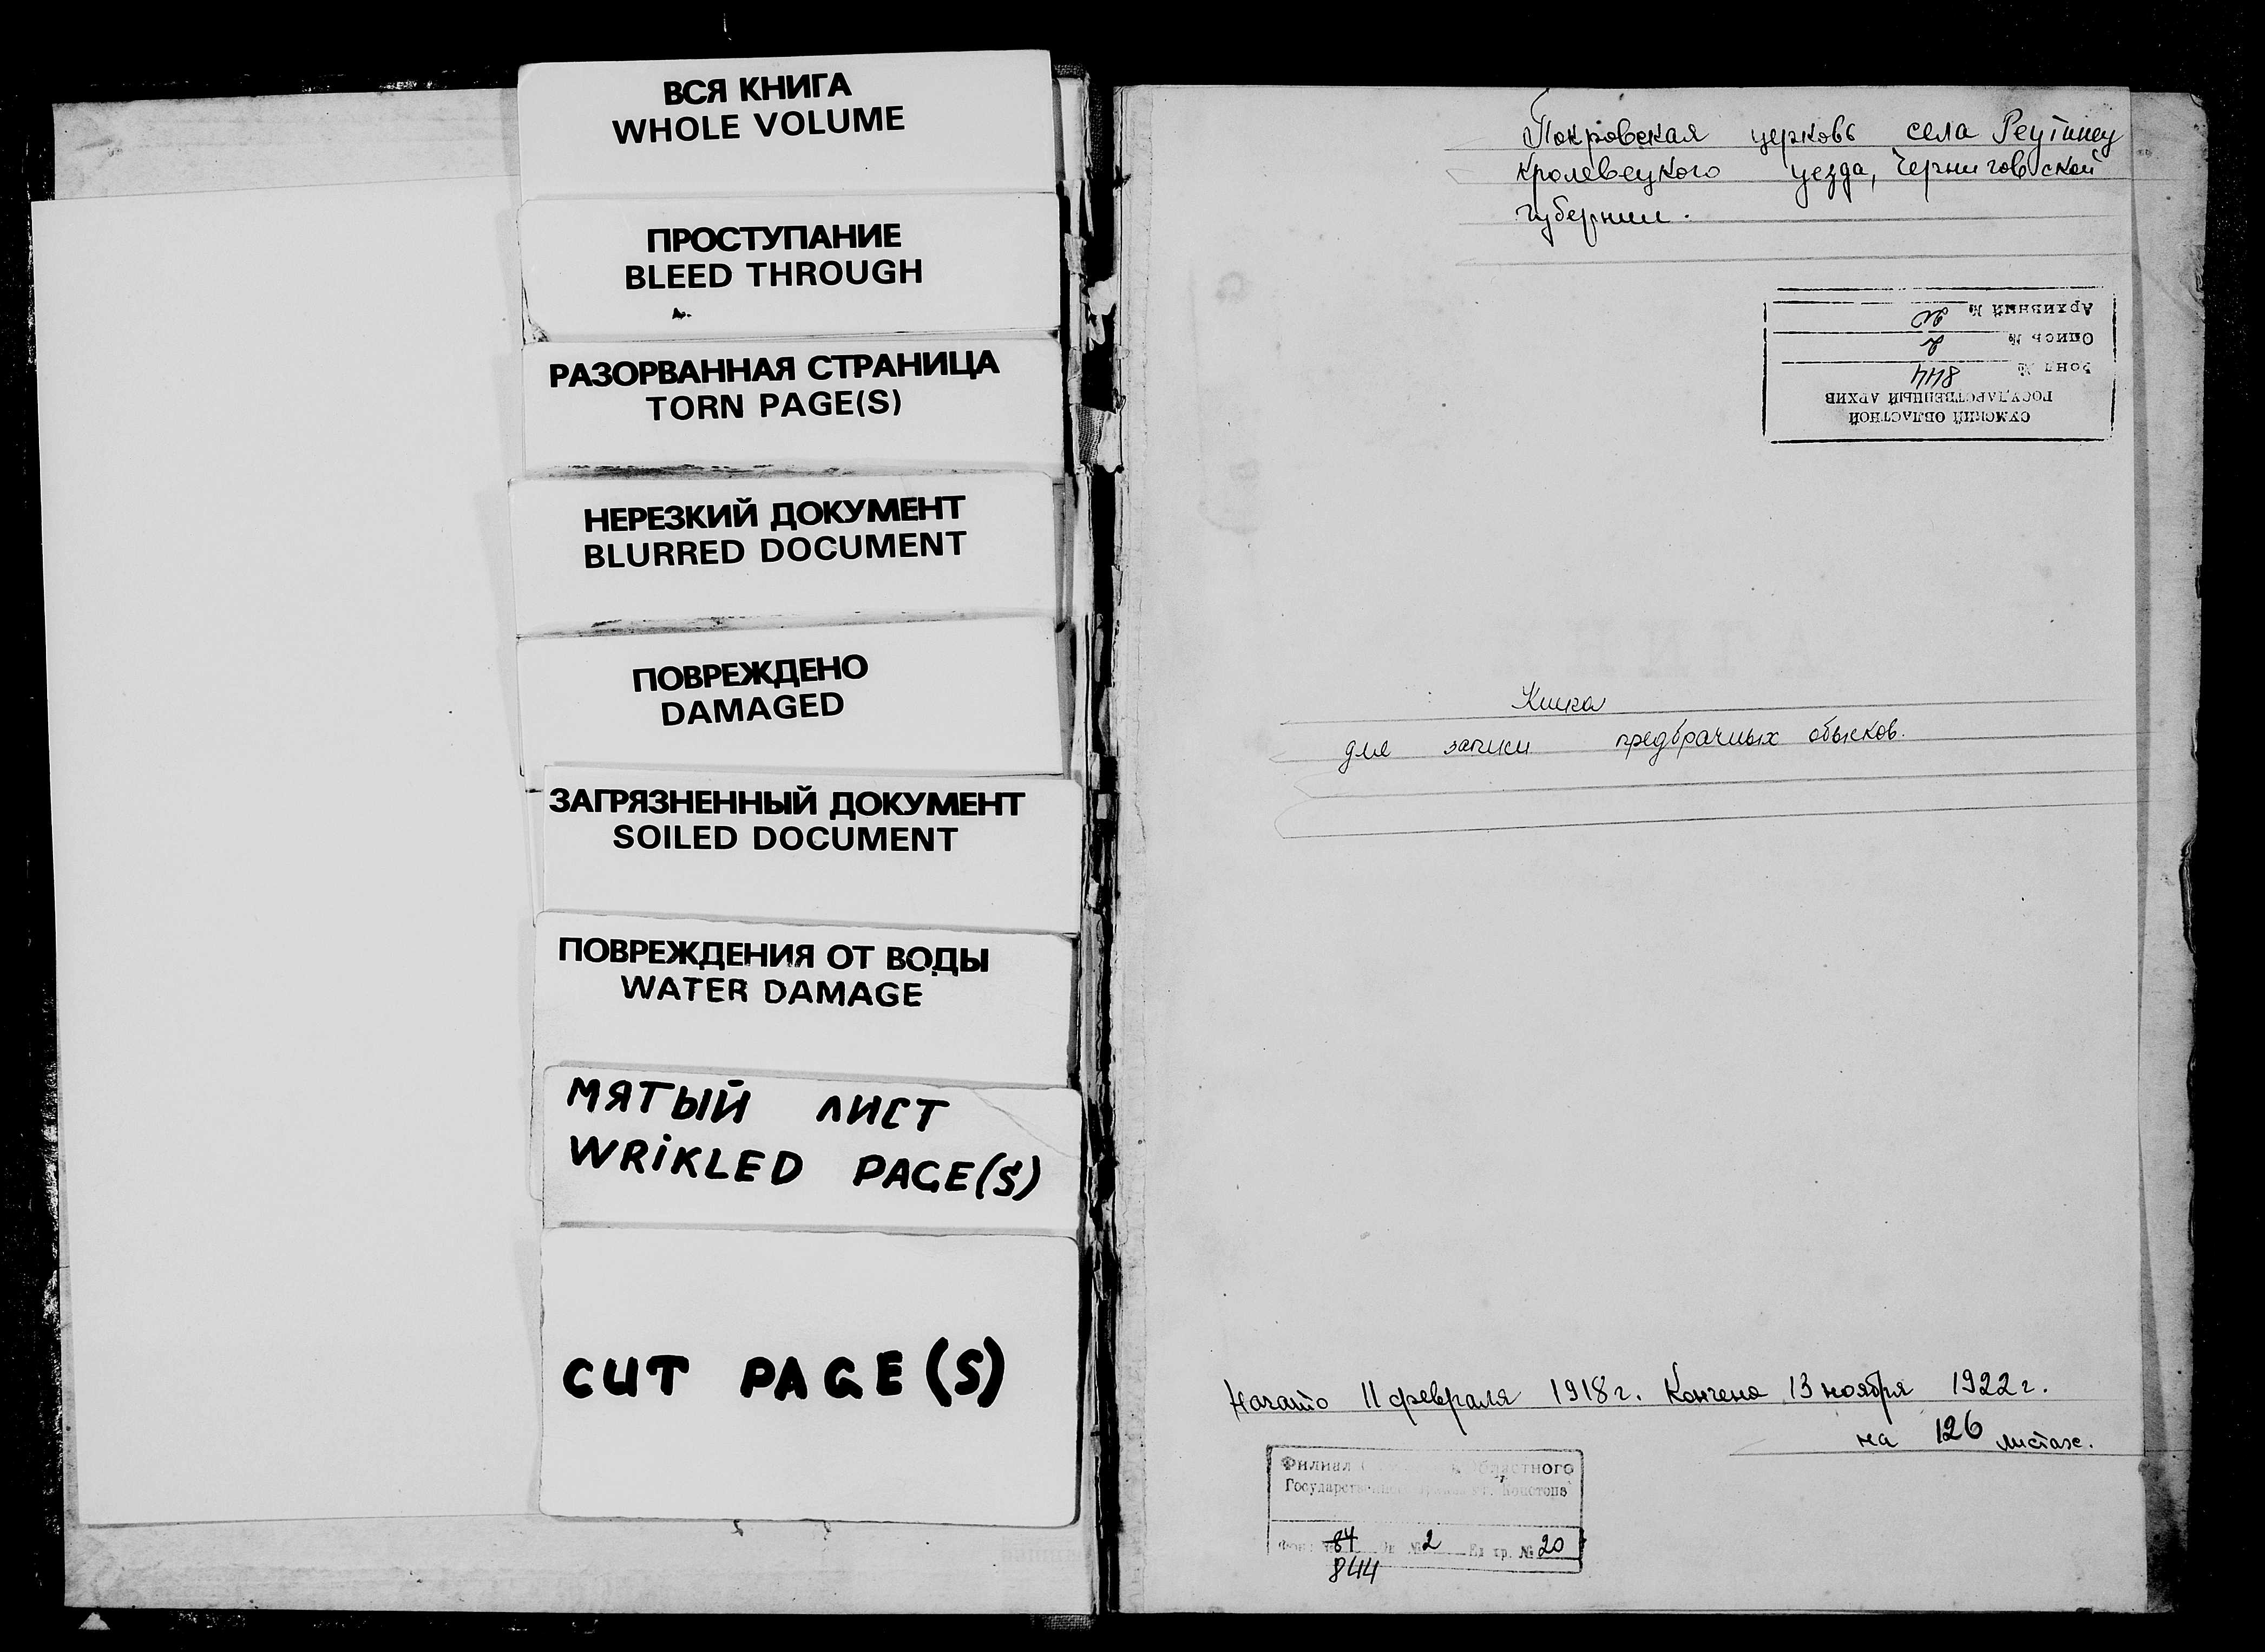 ВСЯ КНИГА
WHOLE VOLUME
ПРОСТУПАНИЕ
BLEED THROUGH
РАЗОРВАННАЯ СТРАНИЦА
TORN PAGE(S)
НЕРЕЗКИЙ ДОКУМЕНТ
BLURRED DOCUMENT
ПОВРЕЖДЕНО
DAMAGED
ЗАГРЯЗНЕННЫЙ ДОКУМЕНТ
SOILED DOCUMENT
ПОВРЕЖДЕНИЯ ОТ ВОДЫ
WATER DAMAGE
МЯТЫЙ ЛИСТ
WRIKLED PAGE(S)
CUT PAGE(S)
Покровская церковь села Реутинец
Кролевецкого уезда, Черниговской
губернии.
СУМСКИЙ ОБЛАСТНОЙ
ГОСУДАРСТВЕННЫЙ АРХИВ
Фонд № 844
Опись № 2
Архивный № 20
Книга
для записи предбрачных обысков.
Начато 11 февраля 1918 г. Кончено 13 ноября 1922 г.
на 126 листах.
Филиал Областного
Государственного г. Конотопа
Фонд 84 Оп № 2 Ед. хр. № 20
844